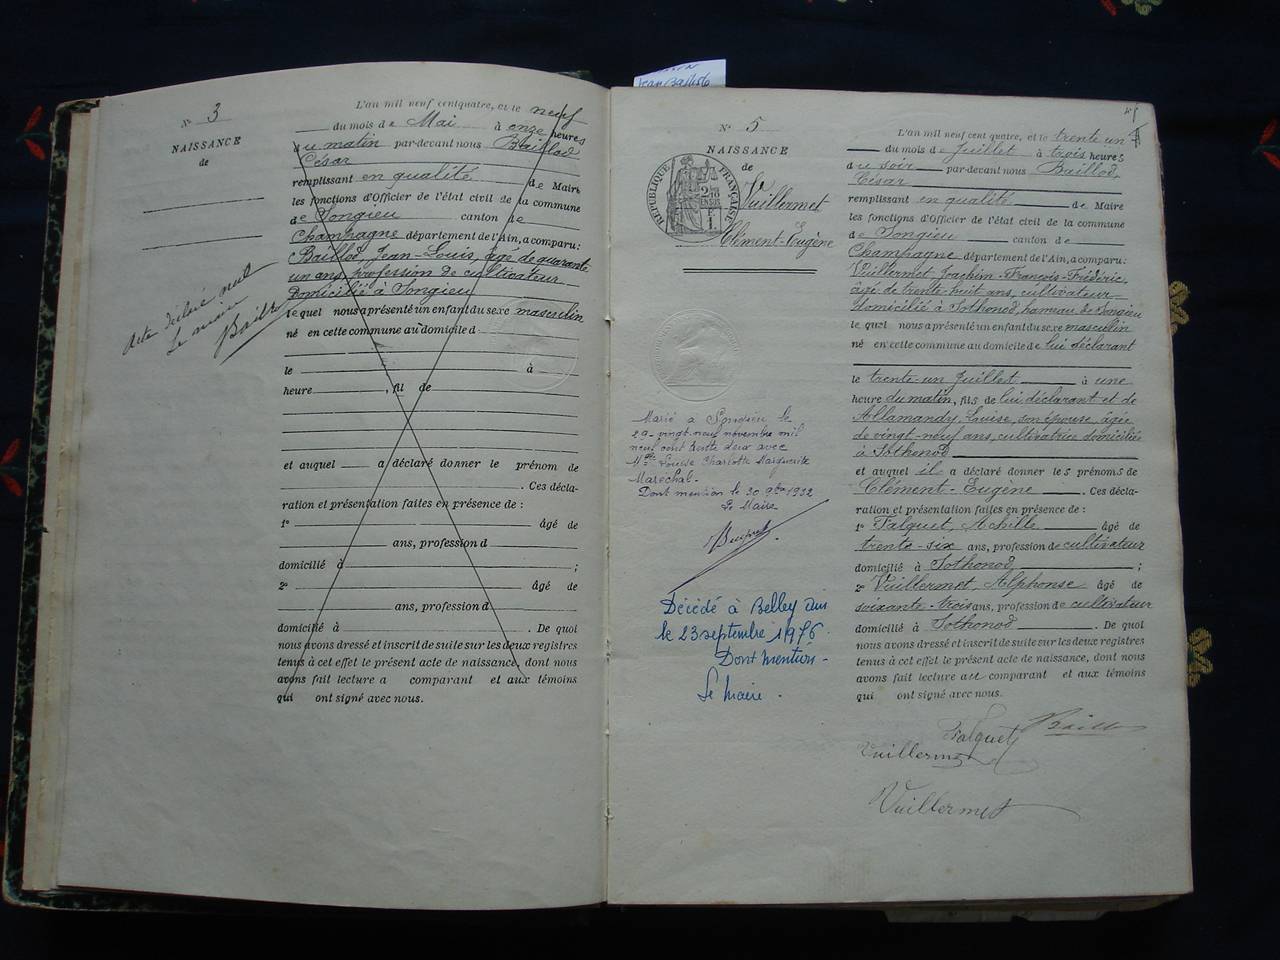 Jean Baptiste
N° 3
NAISSANCE
de
Acte déclaré nul
Le maire
Baillod
L'an mil neuf cent quatre, et le neuf
du mois de Mai à onze heures
du matin par-devant nous Baillod
César
remplissant en qualité de Maire
les fonctions d'Officier de l'état civil de la commune
de Songieu canton de
Champagne département de l'Ain, a comparu:
Baillod, Jean-Louis, âgé de quarante
un ans, profession de cultivateur
domicilié à Songieu
lequel nous a présenté un enfant du sexe masculin
né en cette commune au domicile d
le à
heure , fil de
et auquel a déclaré donner le prénom de
. Ces décla-
ration et présentation faites en présence de :
1° âgé de
ans, profession d
domicilié à ;
2° âgé de
ans, profession d
domicilié à . De quoi
nous avons dressé et inscrit de suite sur les deux registres
tenus à cet effet le présent acte de naissance, dont nous
avons fait lecture a comparant et aux témoins
qui ont signé avec nous.
N° 5
NAISSANCE
de
Vuillermet
Clément-Eugène
RÉPUBLIQUE FRANÇAISE
Marié à Songieu le
29 - vingt-neuf novembre mil
neuf cent trente deux avec
Mlle Louise Charlotte Marguerite
Marechal.
Dont mention le 30 9bre 1932
Le Maire
Décédé à Belley Ain
le 23 septembre 1976.
Dont mention -
Le Maire.
L'an mil neuf cent quatre, et le trente un
du mois de Juillet à trois heures
du soir par-devant nous Baillod,
César
remplissant en qualité de Maire
les fonctions d'Officier de l'état civil de la commune
de Songieu canton de
Champagne département de l'Ain, a comparu:
Vuillermet Joachim-François-Frédéric,
âgé de trente-huit ans, cultivateur
domicilié à Sothonod, hameau de Songieu
lequel nous a présenté un enfant du sexe masculin
né en cette commune au domicile de lui déclarant
le trente-un Juillet à une
heure du matin, fils de lui déclarant et de
Allamandy, Louise, son épouse, âgée
de vingt-neuf ans, cultivatrice domiciliée
à Sothonod
et auquel il a déclaré donner les prénoms de
Clément-Eugène . Ces décla-
ration et présentation faites en présence de :
1° Falquet, Achille âgé de
trente-six ans, profession de cultivateur
domicilié à Sothonod ;
2° Vuillermet, Alphonse âgé de
soixante-trois ans, profession de cultivateur
domicilié à Sothonod . De quoi
nous avons dressé et inscrit de suite sur les deux registres
tenus à cet effet le présent acte de naissance, dont nous
avons fait lecture au comparant et aux témoins
qui ont signé avec nous.
Falquet Baillod
Vuillermet
Vuillermet